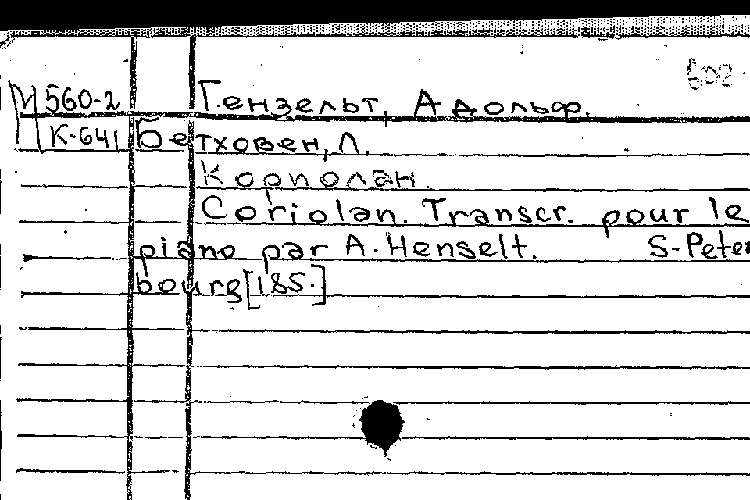 602
М 560-2 Гензельт, Адольф.
К-641 Бетховен, Л.
Кориолан.
Coriolan. Transcr. pour le
piano par A. Henselt. S-Peter
bourg [185.]